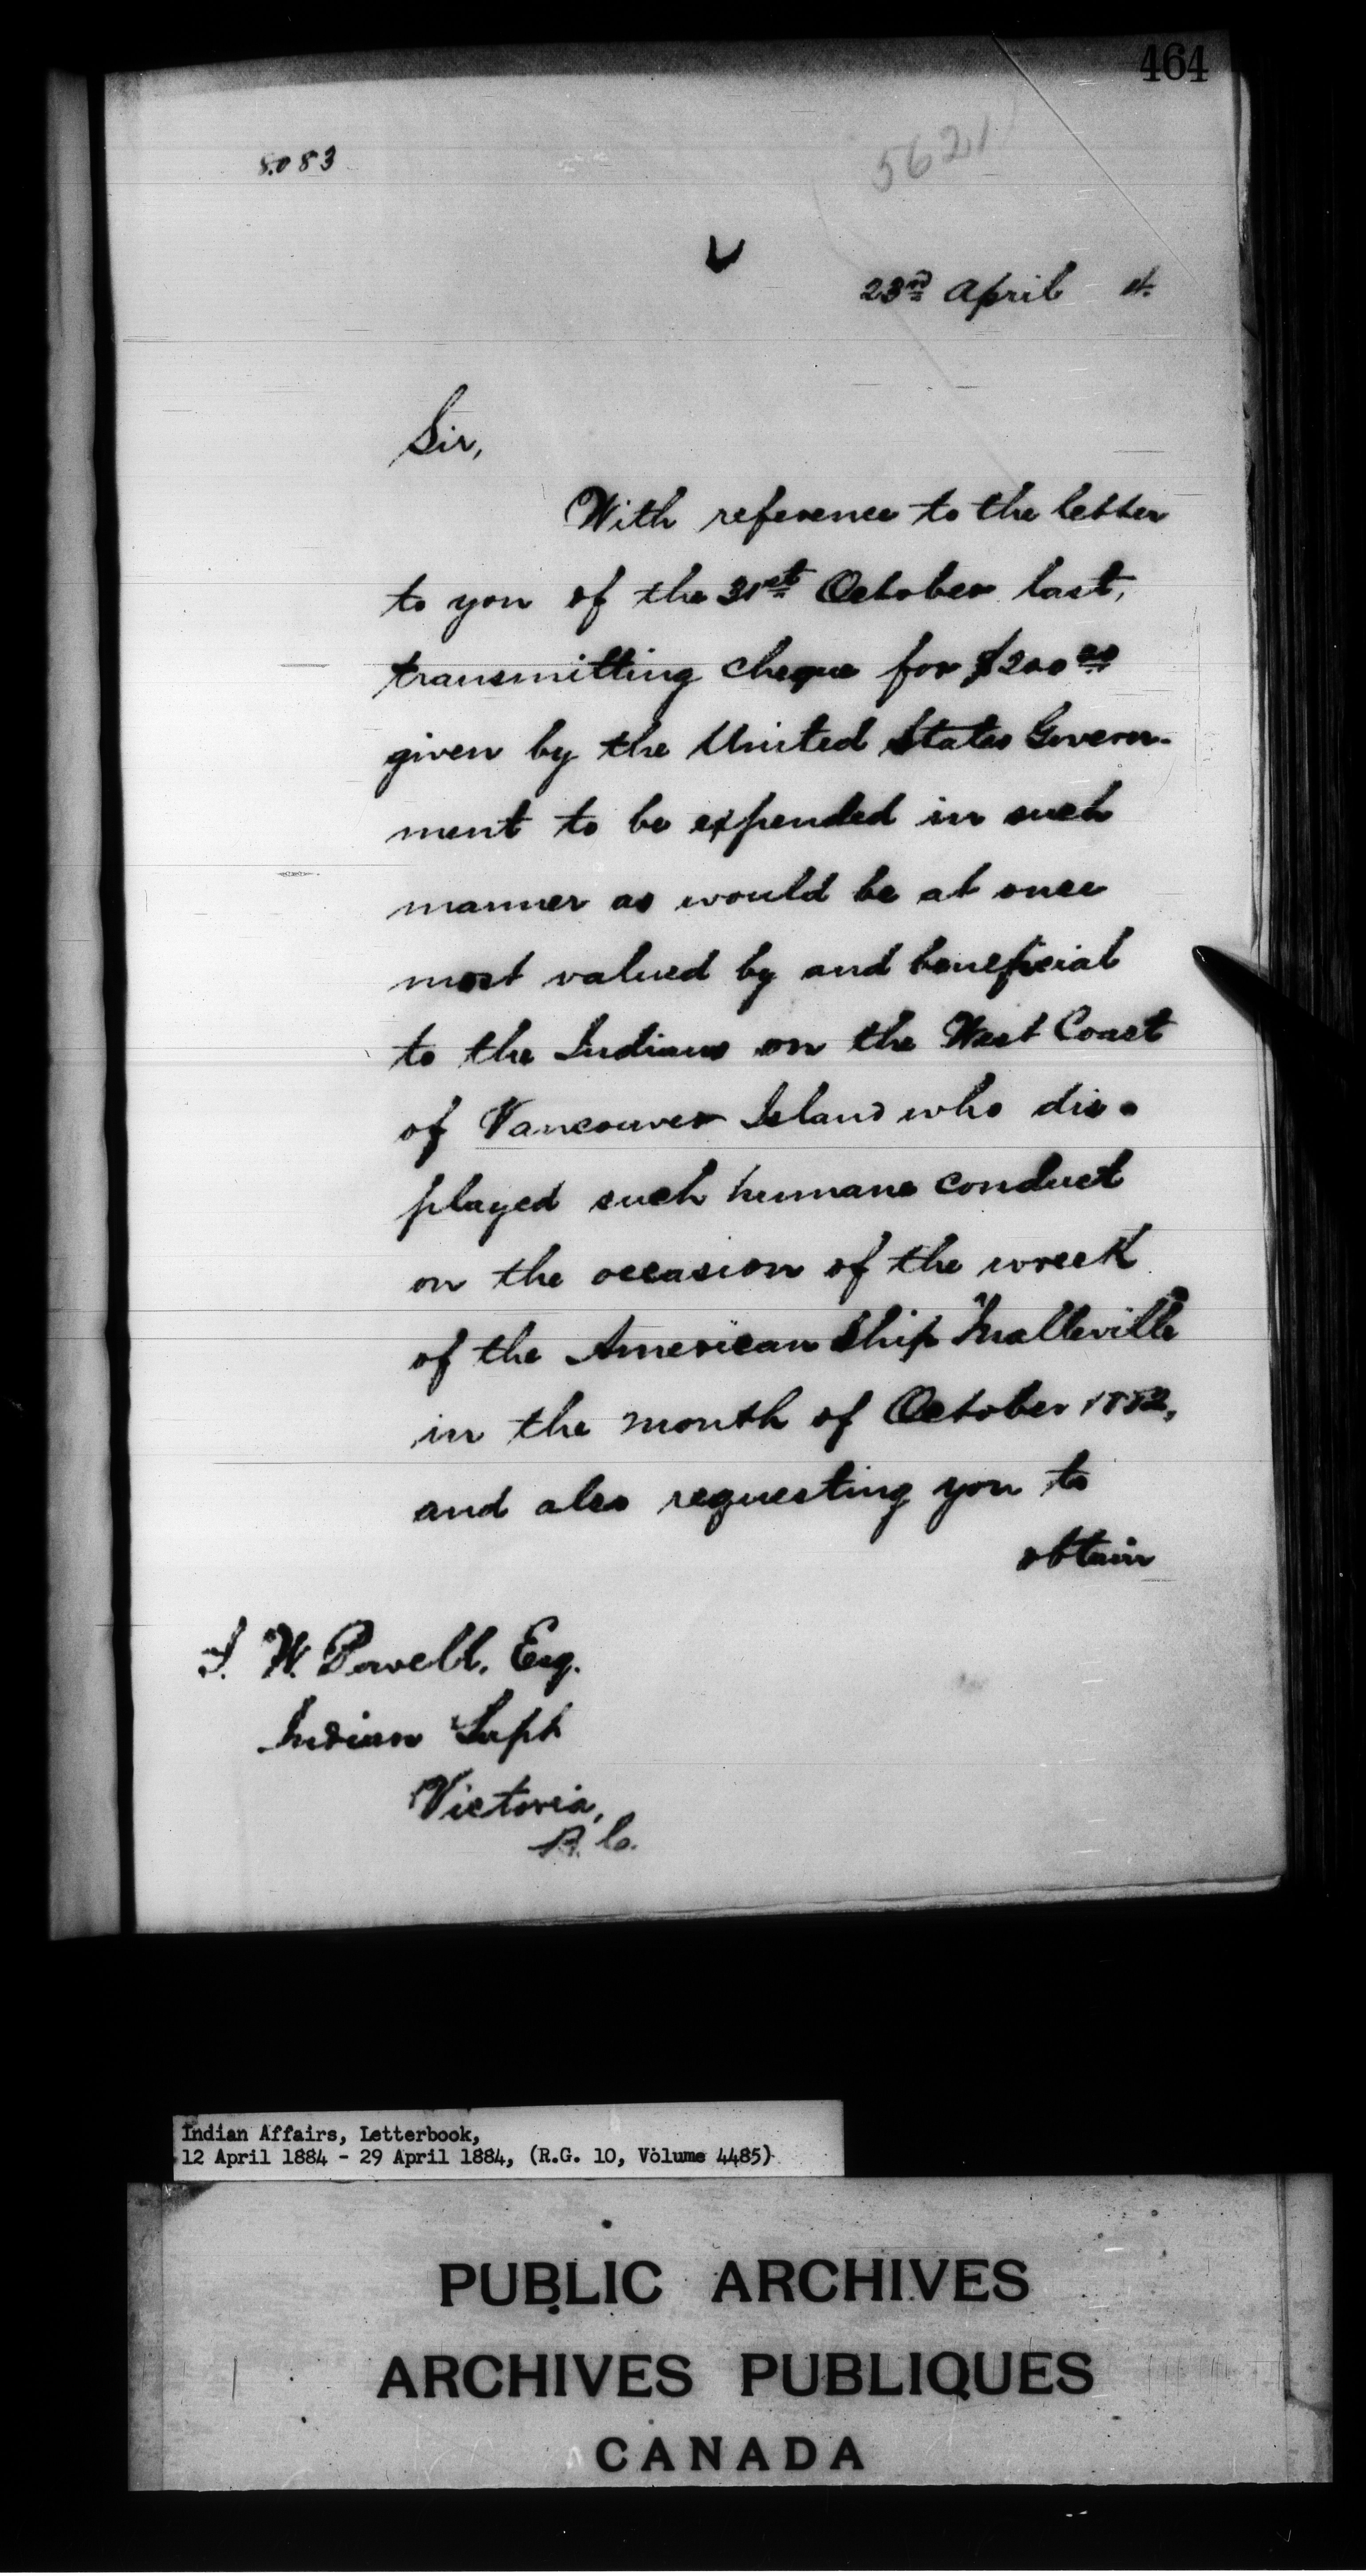 464
8083
5621
23rd April 4.
Sir,
With reference to the letter
to you of the 31st October last,
transmitting cheque for $200.00
given by the United States Govern-
ment to be expended in such
manner as would be at once
most valued by and beneficial
to the Indians on the West Coast
of Vancouver Island who dis-
played such humane conduct
on the occasion of the wreck
of the American Ship "Malleville"
in the month of October 1882,
and also requesting you to
obtain
I. W. Powell, Esq.
Indian Supt
Victoria,
B.C.
Indian Affairs, Letterbook,
12 April 1884 - 29 April 1884, (R.G. 10, Volume 4485)
PUBLIC ARCHIVES
ARCHIVES PUBLIQUES
CANADA